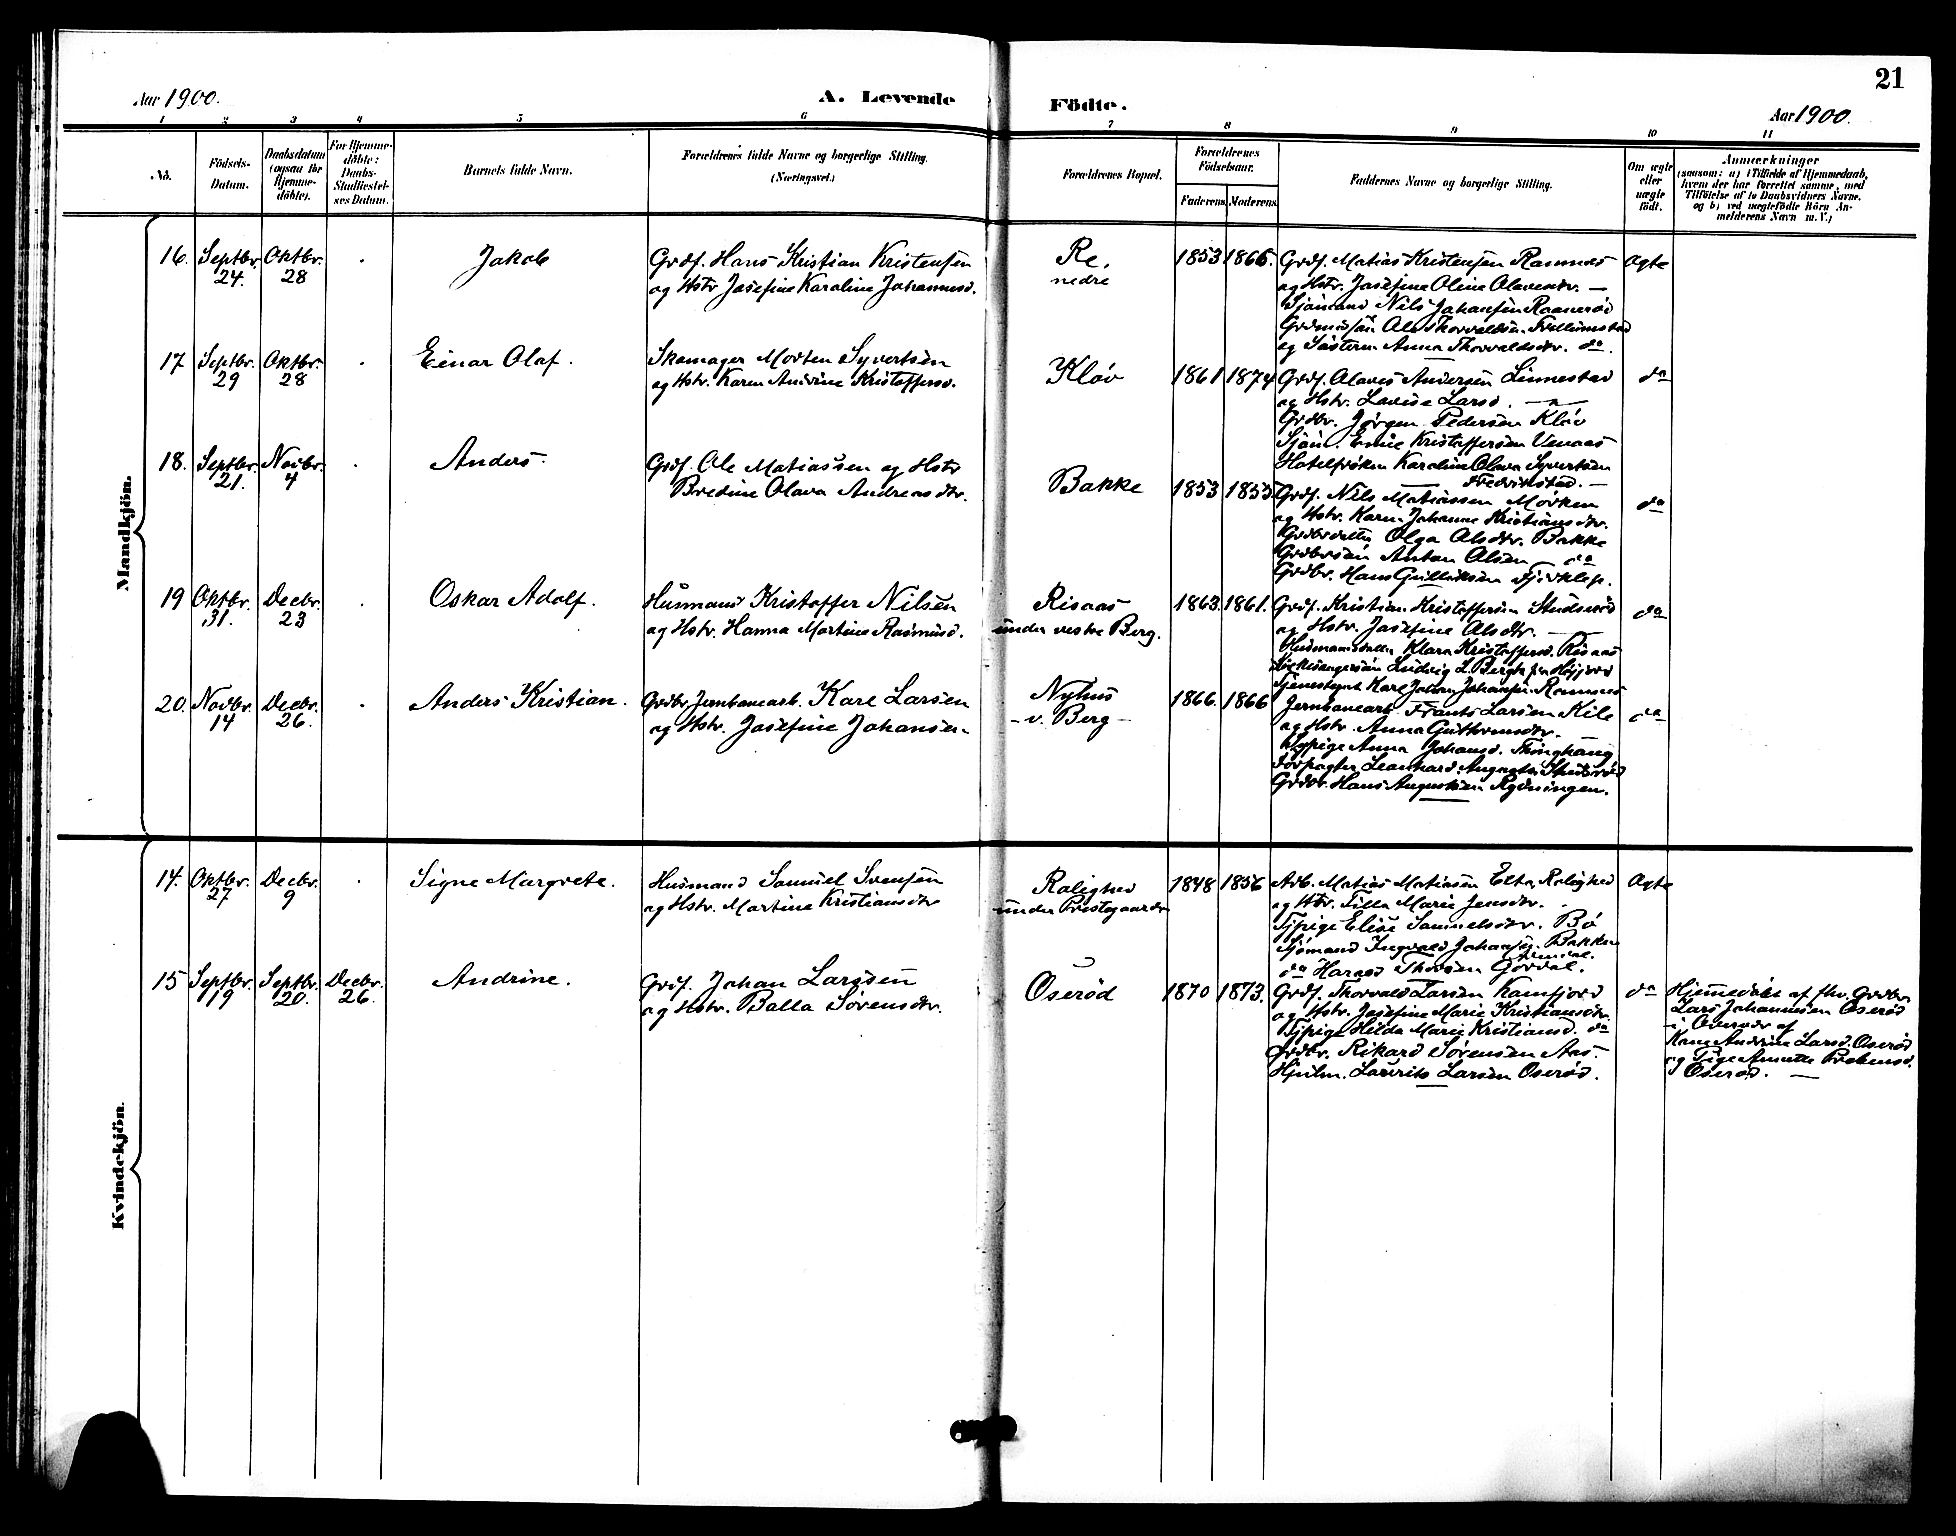 21
Aar 1900.
A. Levende Födte.
Aar 1900.
1 2 3 4 5 6 7 8 9 10 11
No.
Födsels-Datum.
Daabsdatum (ogsaa for Hjemme-döbte).
For Hjemme-döbte: Daabs-Stadfæstel-ses Datum.
Barnets fulde Navn.
Forældrenes fulde Navne og borgerlige Stilling. (Næringsvei.)
Forældrenes Bopæl.
Forældrenes Födselsaar.
Faderens. Moderens.
Faddernes Navne og borgerlige Stilling.
Om ægte eller uægte födt.
Anmærkninger
(saasom: a) i Tilfælde af Hjemmedaab,
hvem der har forrettet samme, med
Tilföielse af to Daabsvidners Navne,
og b) ved uægtefödte Börn An-
melderens Navn m. V.)
Mandkjön.
16. Septbr. 24. Oktbr. 28
Jakob
Grdf. Hans Kristian Kristensen
og Hstr. Josefine Karoline Johannesd.
Re,
nedre
1853 1866.
Grdf. Matias Kristensen Ramnes
og Hstr. Josefine Oline Olavesdr. —
Sjömand Nils Johansen
og Söstern Anna Thorvaldsdr. do.
Ægte
17 Septbr. 29 Oktbr. 28
Einar Olaf.
Skomager Morten Syvertsen
og Hstr. Karen Andrine Kristoffersd.
Kløv
1861 1874
Grdf. Olaves Andersen Linnestad
og Hstr. Lovise Larsd. —
Grdbr. Jørgen Pedersen Kløv
Sjöm. Emil Kristoffersen Venaas
Hotelfröken Karoline Olava Syvertsen
Fredrikstad. —
do
18. Septbr. 21. Novbr. 4
Anders.
Grdf. Ole Matiassen og Hstr
Bredine Olava Andreasdtr.
Bakke
1853 1855
Grdf. Nils Matiassen Mörken
og Hstr. Karen Johanne Kristiansdtr.
Olga Olsdtr. Bakke
Grdbrsön Anton Olsen do
Grdbr. Hans Gulliksen
do
19 Oktbr. 31. Decbr. 23
Oskar Adolf.
Husmand Kristoffer Nilsen
og Hstr. Hanna Martine Rasmusd.
Risaas
under vestre Berg.
1863. 1861.
Grdf. Kristian Kristoffersen Studsrød
og Hstr. Josefine Olsdtr. —
Klara Kristoffersd. Risaas
Ludvig L. Bergh
Tjenestegut Karl Johan Johansen Ramnes
do
20. Novbr. 14 Decbr. 26.
Anders Kristian.
Grdbr. Jernbanearb. Karl Larsen
og Hstr. Josefine Johansen
Nyhus
- v. Berg -
1866. 1866
Jernbanearb. Frants Larsen Kile
og Hstr. Anna Guthormsdtr.
Anna Johansd. Thinghaug
Forpagter Leonhard
Grdbr. Hans Augustsen Rydningen.
do
Kvindekjön.
14. Oktbr. 27 Decbr. 9
Signe Margrete.
Husmand Samuel Svensen
og Hstr. Martine Kristiansdtr
Rolighed
under Prestegaarden
1848 1856
Arb. Matias Matiasen Rolighed
og Hstr. Tilla Marie Jensdtr.
Tjpige Elise Samuelsdtr. Bö
Sjømand Ingvald Johansen. Bakken
do Harald Thorsen
Ægte
15 Septbr. 19 Septbr. 20. Decbr. 26.
Andrine.
Grdf. Johan Larssen
og Hstr. Balla Sørensdtr.
Oserød
1870 1873.
Grdf. Thorvald Larsen Kamfjord
og Hstr. Josefine Marie Kristiansdtr.
Tjpige Hilda Marie Kristiansd. do
Grdbr. Rikard Sørensen Aas.
Hjulm. Lauritz Larsen Oserød.
do
Hjemmedøbt af fhv. Grdbr.
Lars Johannesen Oserød
i Overvær af
Kone Andrine Larsd. Oserød
og Pige Annette
Oserød. —